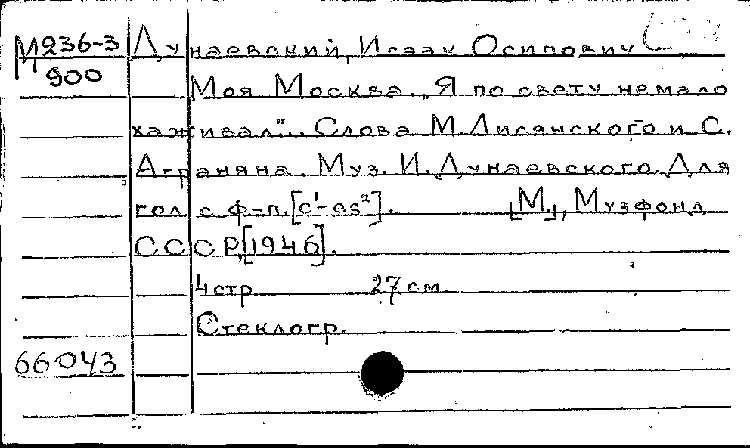 М236-3 Дунаевский, Исаак Осипович
900
Моя Москва. „Я по свету немало
хаживал"... Слова М. Лисянского и С.
Аграняна. Муз. И. Дунаевского. Для
гол. с ф-п. [c¹-as²]. [М.], Музфонд
СССР, [1946].
4 стр. 27 см.
Стеклогр.
66043